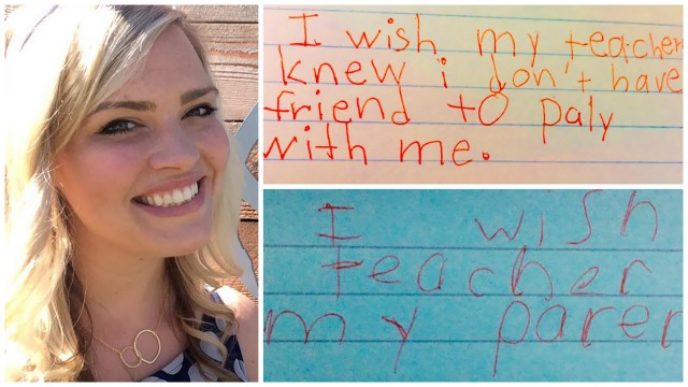 I wish my teacher
knew i don't have
friend to paly
with me.
I wish
teacher
my paren